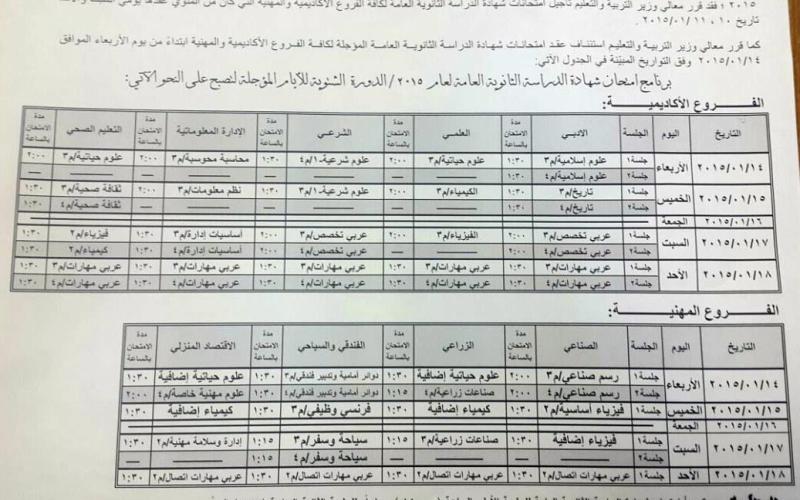 ٢٠١٥ ؛ فقد قرر معالي وزير التربية والتعليم تأجيل امتحانات شهادة الدراسة الثانوية العامة لكافة الفروع الأكاديمية والمهنية التي كان من المنوي عقدها يومي السبت
تاريخ ١٠ ، ٢٠١٥/٠١/١١ .
كما قرر معالي وزير التربية والتعليم استئناف عقد امتحانات شهادة الدراسة الثانوية العامة المؤجلة لكافة الفروع الأكاديمية والمهنية ابتداءً من يوم الأربعاء الموافق
٢٠١٥/٠١/١٤ وفق التواريخ المبيّنة في الجدول الآتي:
برنامج امتحان شهادة الدراسة الثانوية العامة لعام ٢٠١٥/ الدورة الشتوية للأيام المؤجلة لتصبح على النحو الآتي:
الفروع الأكاديمية:
التاريخ اليوم الجلسة الأدبي مدة الامتحان بالساعة العلمي مدة الامتحان بالساعة الشرعي مدة الامتحان بالساعة الإدارة المعلوماتية مدة الامتحان بالساعة التعليم الصحي مدة الامتحان بالساعة
٢٠١٥/٠١/١٤ الأربعاء جلسة١ علوم إسلامية/م٣ ١:٣٠ علوم حياتية/م٣ ٢:٠٠ علوم شرعية-١/م٤ ١:٣٠ محاسبة محوسبة/م٣ ٢:٠٠ علوم حياتية/م٣ ٢:٠٠
جلسة٢ علوم إسلامية/م٤ ١:٣٠ — — — — — — — —
٢٠١٥/٠١/١٥ الخميس جلسة١ تاريخ/م٣ ١:٣٠ الكيمياء/م٣ ٢:٠٠ علوم شرعية-١/م٣ ١:٣٠ نظم معلومات/م٣ ١:٣٠ ثقافة صحية/م٣ ١:٣٠
جلسة٢ تاريخ/م٤ ١:٣٠ — — — — — — ثقافة صحية/م٤ ١:٣٠
٢٠١٥/٠١/١٦ الجمعة
٢٠١٥/٠١/١٧ السبت جلسة١ عربي تخصص/م٣ ٢:٠٠ الفيزياء/م٣ ٢:٠٠ عربي تخصص/م٣ ٢:٠٠ أساسيات إدارة/م٣ ١:٣٠ فيزياء/م٢ ١:٣٠
جلسة٢ عربي تخصص/م٤ ٢:٠٠ — — عربي تخصص/م٤ ٢:٠٠ أساسيات إدارة/م٤ ١:٣٠ كيمياء/م٢ ١:٣٠
٢٠١٥/٠١/١٨ الأحد جلسة١ عربي مهارات/م٣ ١:٣٠ عربي مهارات/م٣ ١:٣٠ عربي مهارات/م٣ ١:٣٠ عربي مهارات/م٣ ١:٣٠ عربي مهارات/م٣ ١:٣٠
جلسة٢ عربي مهارات/م٤ ١:٣٠ عربي مهارات/م٤ ١:٣٠ عربي مهارات/م٤ ١:٣٠ عربي مهارات/م٤ ١:٣٠ عربي مهارات/م٤ ١:٣٠
الفروع المهنية:
التاريخ اليوم الجلسة الصناعي مدة الامتحان بالساعة الزراعي مدة الامتحان بالساعة الفندقي والسياحي مدة الامتحان بالساعة الاقتصاد المنزلي مدة الامتحان بالساعة
٢٠١٥/٠١/١٤ الأربعاء جلسة١ رسم صناعي/م٣ ٢:٠٠ علوم حياتية إضافية ١:٣٠ دوائر أمامية وتدبير فندقي/م٣ ١:٣٠ علوم حياتية إضافية ١:٣٠
جلسة٢ رسم صناعي/م٤ ٢:٠٠ صناعات زراعية/م٤ ١:١٥ دوائر أمامية وتدبير فندقي/م٤ ١:٣٠ علوم مهنية خاصة/م٤ ٢:٠٠
٢٠١٥/٠١/١٥ الخميس جلسة١ فيزياء أساسية/م٢ ١:٣٠ كيمياء إضافية ١:٣٠ فرنسي وظيفي/م٣ ١:٣٠ كيمياء إضافية ١:٣٠
٢٠١٥/٠١/١٦ الجمعة
٢٠١٥/٠١/١٧ السبت جلسة١ فيزياء إضافية ١:٣٠ صناعات زراعية/م٣ ١:١٥ سياحة وسفر/م٣ ١:١٥ إدارة وسلامة مهنية/م٢ ١:١٥
جلسة٢ — — — — سياحة وسفر/م٤ ١:١٥ — —
٢٠١٥/٠١/١٨ الأحد جلسة١ عربي مهارات اتصال/م٢ ١:٣٠ عربي مهارات اتصال/م٢ ١:٣٠ عربي مهارات اتصال/م٢ ١:٣٠ عربي مهارات اتصال/م٢ ١:٣٠